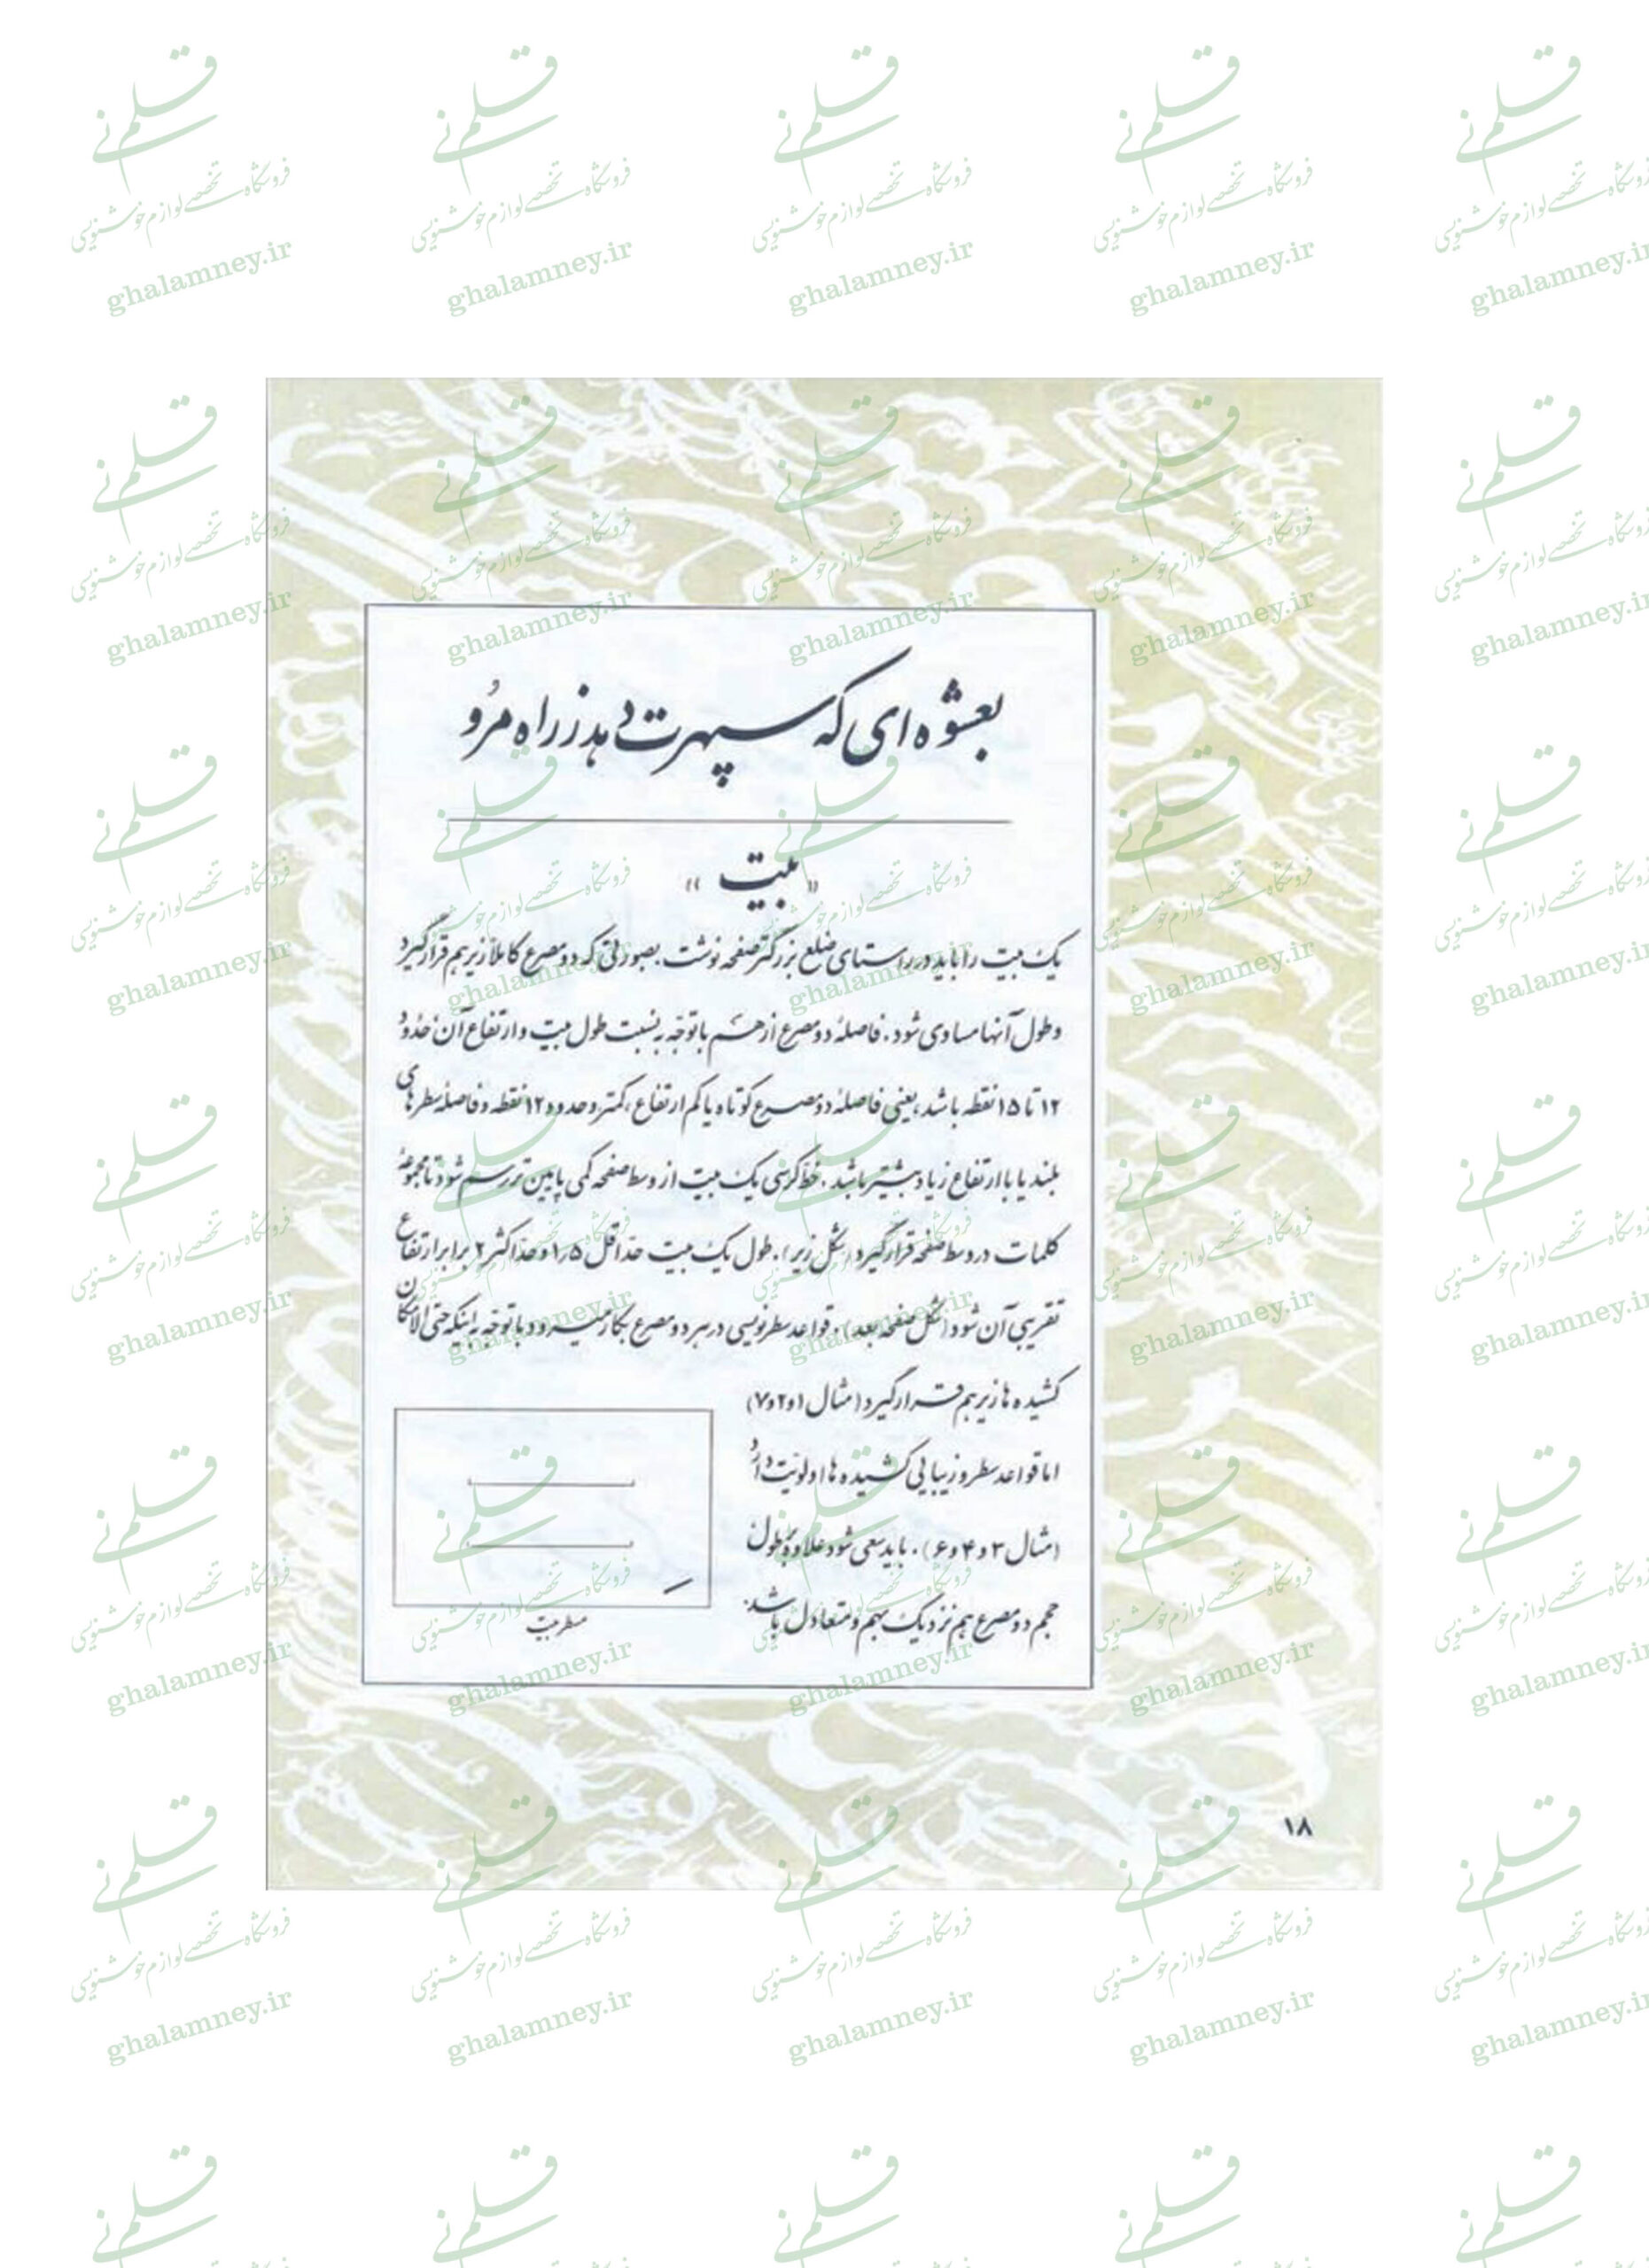 بعشوه‌ای که سپهرت دهد ز راه مرو
«بیت»
یک بیت را باید در راستای ضلع بزرگتر صفحه نوشت. بصورتی که دو مصرع کاملاً زیر هم قرار گیرد
و طول آنها مساوی شود. فاصلهٔ دو مصرع از هم با توجّه به نسبت طول بیت و ارتفاع آن حدود
۱۲ تا ۱۵ نقطه باشد، یعنی فاصلهٔ دو مصرع کوتاه یا کم ارتفاع، کمتر و حدود ۱۲ نقطه و فاصلهٔ سطرهای
بلند یا با ارتفاع زیاد بیشتر باشد. خط کرسی یک بیت از وسط صفحه کمی پایین‌تر رسم شود تا مجموعهٔ
کلمات در وسط صفحه قرار گیرد (شکل زیر). طول یک بیت حدّاقل ۱٫۵ و حدّاکثر ۲ برابر ارتفاع
تقریبی آن شود (شکل صفحه بعد). قواعد سطرنویسی در هر دو مصرع بکار میرود با توجّه به اینکه حتی الامکان
کشیده‌ها زیر هم قرار گیرد (مثال ۱و۲و۷)
اما قواعد سطر و زیبایی کشیده‌ها اولویّت دارد
(مثال ۳ و ۴ و ۶). باید سعی شود علاوه بر طول
حجم دو مصرع هم نزدیک بهم و متعادل باشد.
مسطر بیت
۱۸
قلم نی
فروشگاه تخصصی لوازم خوشنویسی
ghalamney.ir